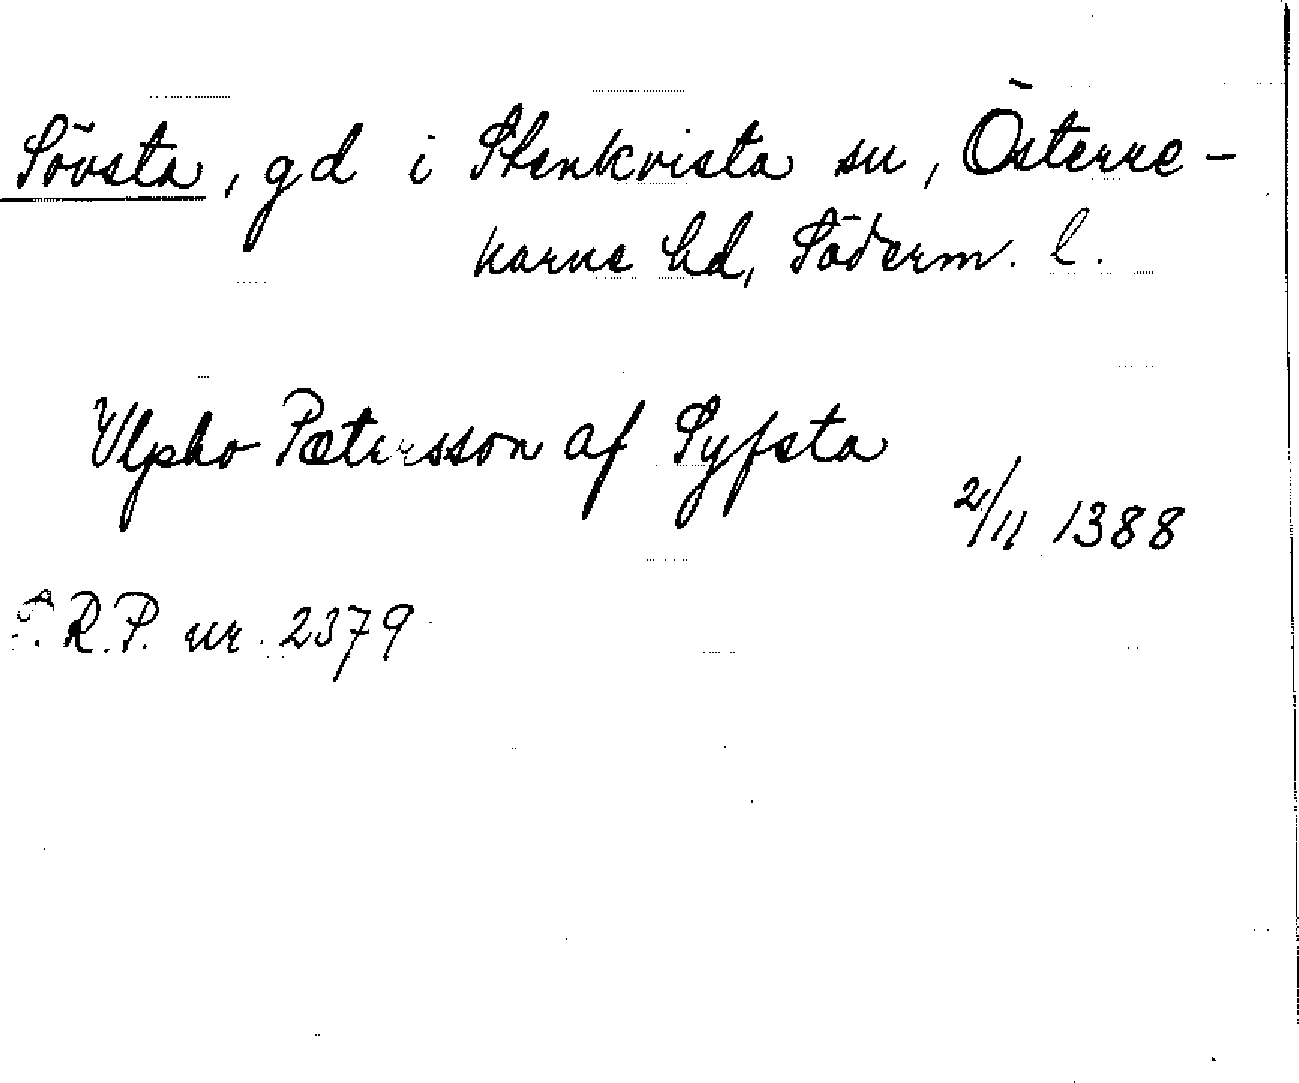 Sövsta, gd i Stenkvista sn, Österre-
karne hd, Söderm. l.
Ulpho Pætersson af Syfsta
2/11 1388
P.R.P. nr. 2379